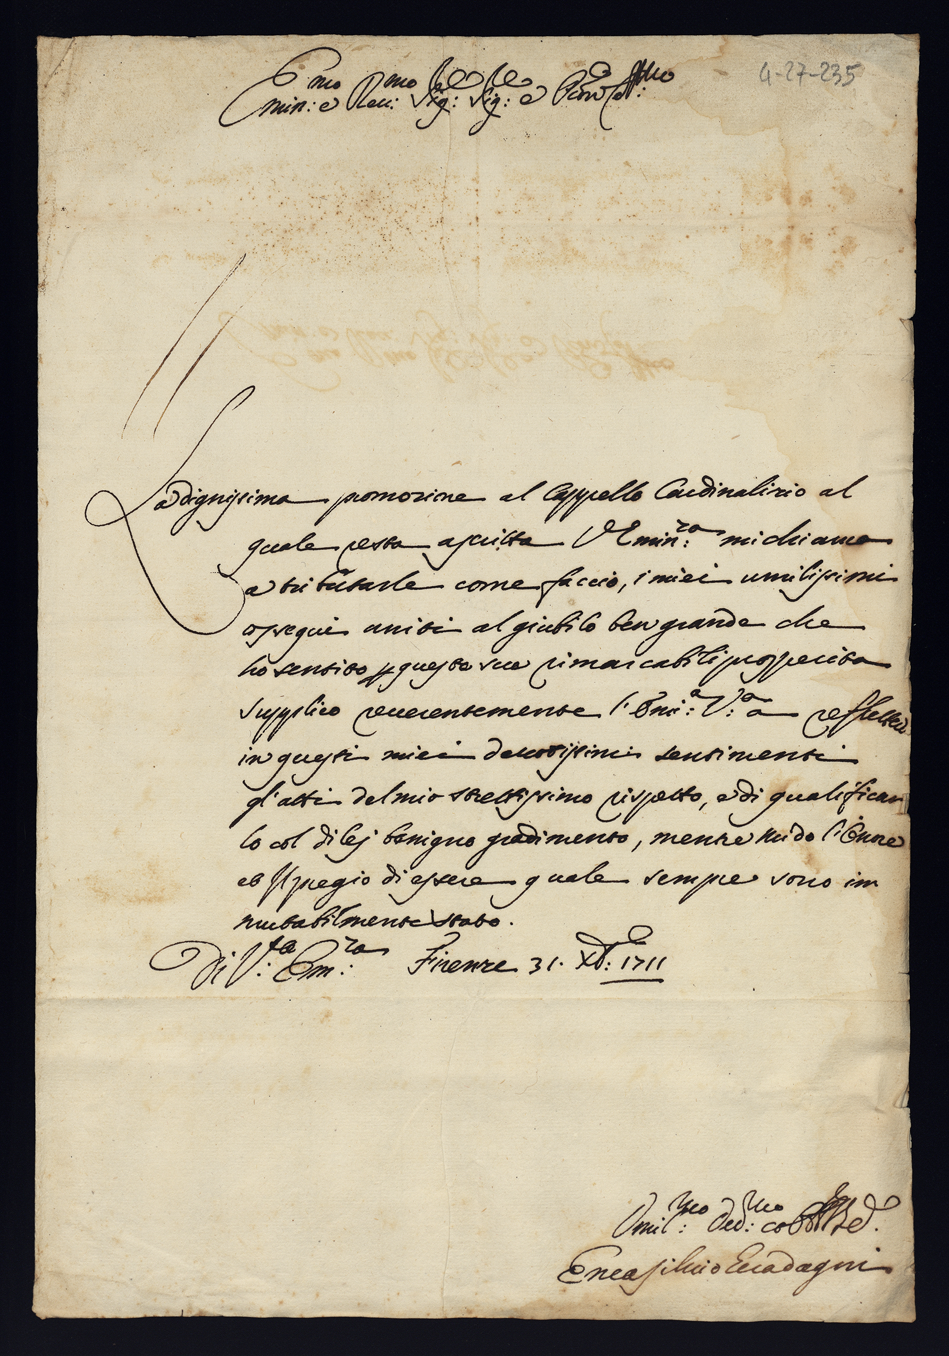 4-27-235
Emin:mo e Rev:mo Sig:re Sig:re e Pron
La dignissima promozione al Cappello Cardinalizio al
quale resta ascritta V Emin:za mi chiama
a tributarle come faccio, i miei umilissimi
ossequi uniti al giubilo ben grande che
ho sentito p questa sua rimarcabili prosperita
supplico reverentemente l'Emi:a V:a a reflettere
in questi miei devotissimi sentimenti
gl'atti del mio strettissimo rispetto, e di qualificar
lo col di lej benigno gradimento, mentre l'Onore
et il pregio di essere quale sempre sono im
mutabilmente stato.
Di V:ra Em:za Firenze 31. Xb: 1711
Umil:mo Dev:mo
Enea Silvio